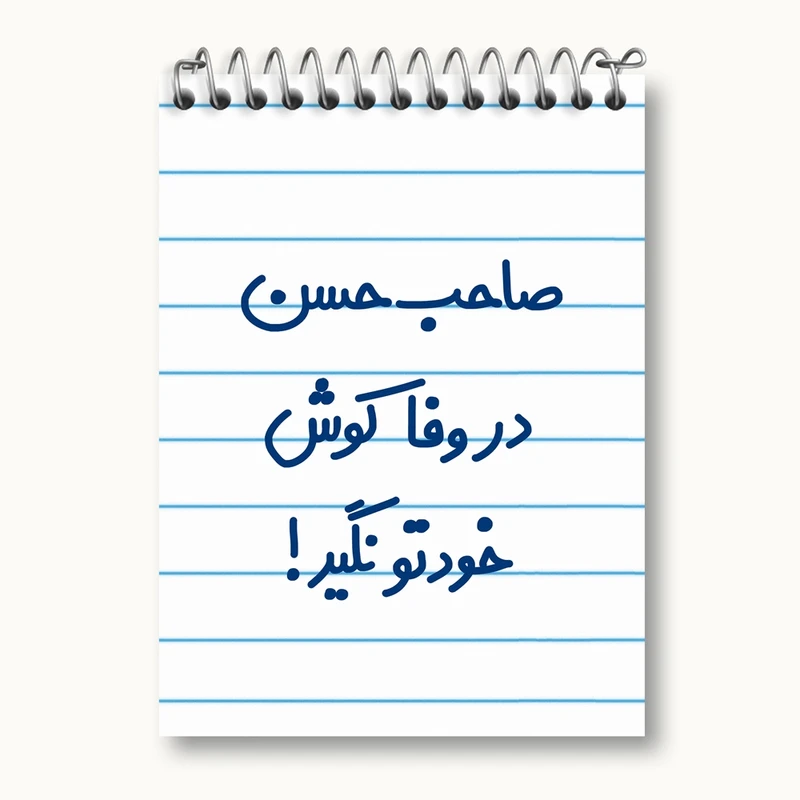 صاحب حسن
در وفا کوش
خودتو نگیر!